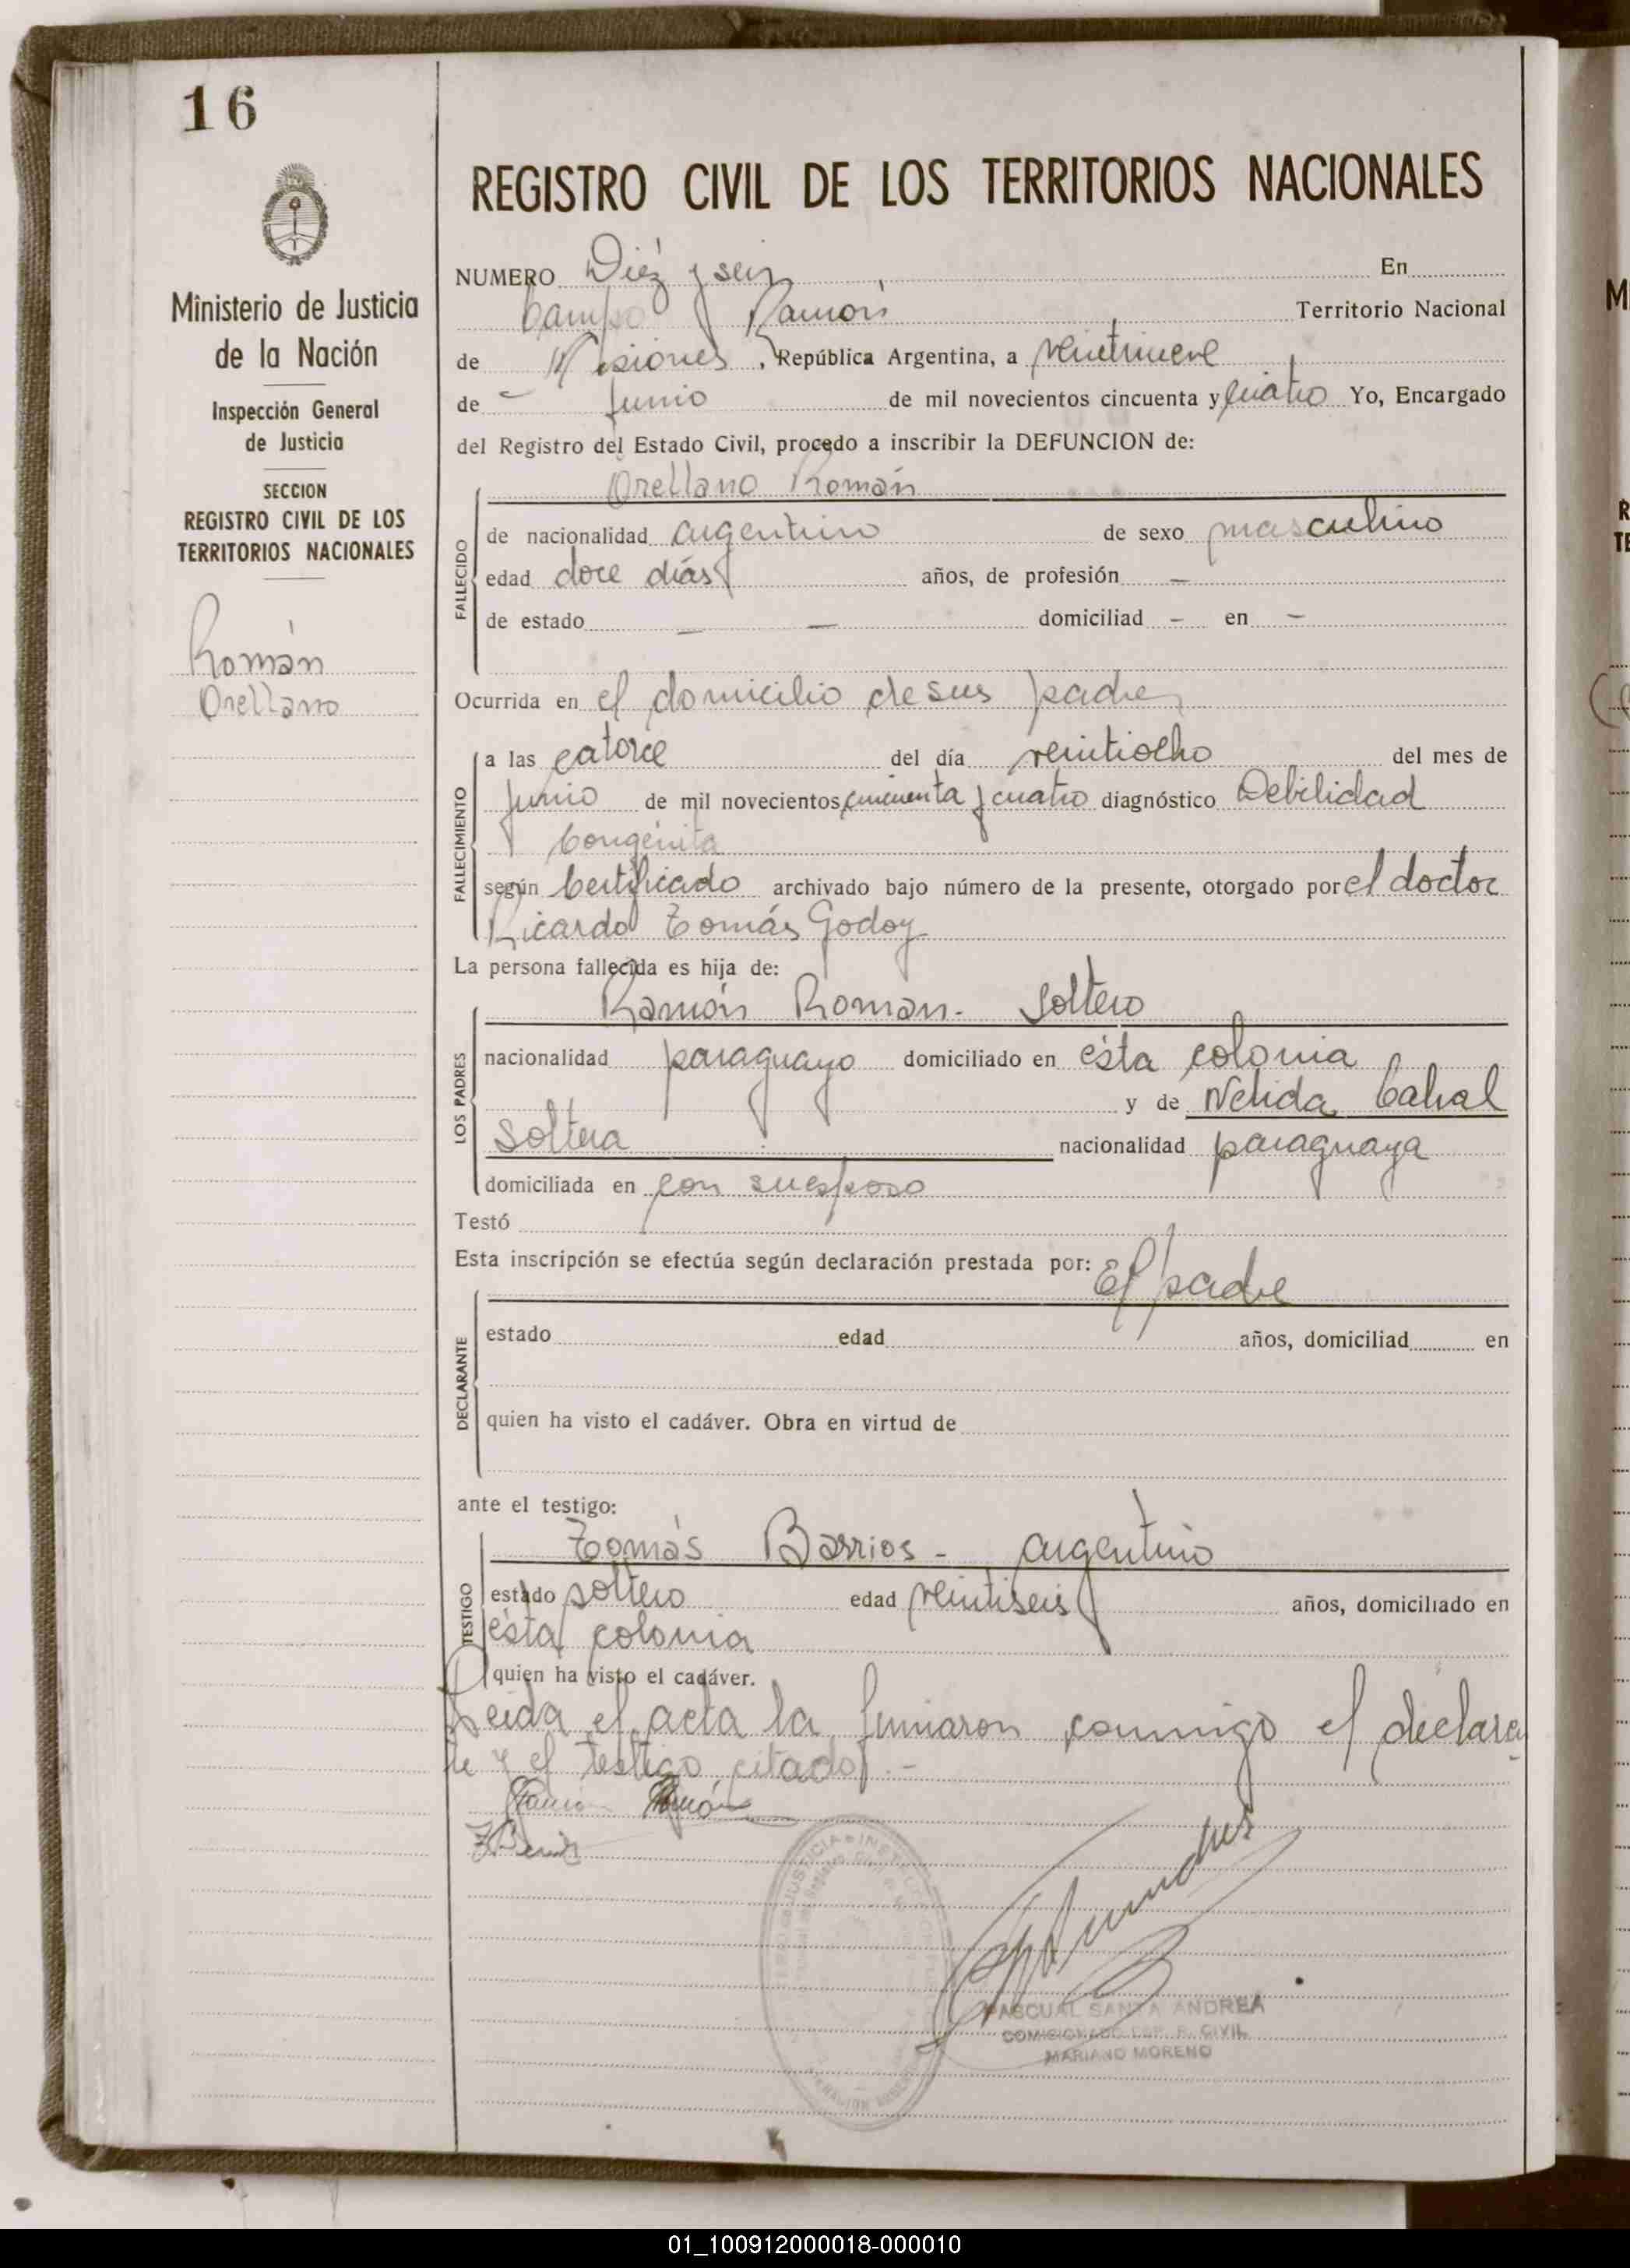 16
Ministerio de Justicia
de la Nación
Inspección General
de Justicia
SECCION
REGISTRO CIVIL DE LOS
TERRITORIOS NACIONALES
Román
Orellano
REGISTRO CIVIL DE LOS TERRITORIOS NACIONALES
NUMERO Diéz y seis En
Campo Ramón Territorio Nacional
de Misiones, República Argentina, a veintinueve
de - Junio de mil novecientos cincuenta y cuatro Yo, Encargado
del Registro del Estado Civil, procedo a inscribir la DEFUNCION de:
Orellano Román
FALLECIDO
de nacionalidad argentino de sexo masculino
edad doce días años, de profesión —
de estado — — domiciliad - en -
Ocurrida en el domicilio de sus padres
FALLECIMIENTO
a las catorce del día veintiocho del mes de
Junio de mil novecientos cincuenta y cuatro diagnóstico Debilidad
Congénita
según Certificado archivado bajo número de la presente, otorgado por el doctor
Ricardo Tomás Godoy
La persona fallecida es hija de:
LOS PADRES
Ramón Roman - Soltero
nacionalidad paraguayo domiciliado en ésta colonia
y de Nélida Cabral
Soltera nacionalidad paraguaya
domiciliada en con su esposo
Testó
Esta inscripción se efectúa según declaración prestada por:
El padre
DECLARANTE
estado edad años, domiciliad en
quien ha visto el cadáver. Obra en virtud de
ante el testigo:
TESTIGO
Tomás Barrios - argentino
estado soltero edad veintiseis años, domiciliado en
ésta colonia
quien ha visto el cadáver.
Leida el acta la firmaron conmigo el declaran
te y el testigo citado. -
PASCUAL SANTA ANDREA
COMISIONADO ESP. R. CIVIL
MARIANO MORENO
01_100912000018-000010